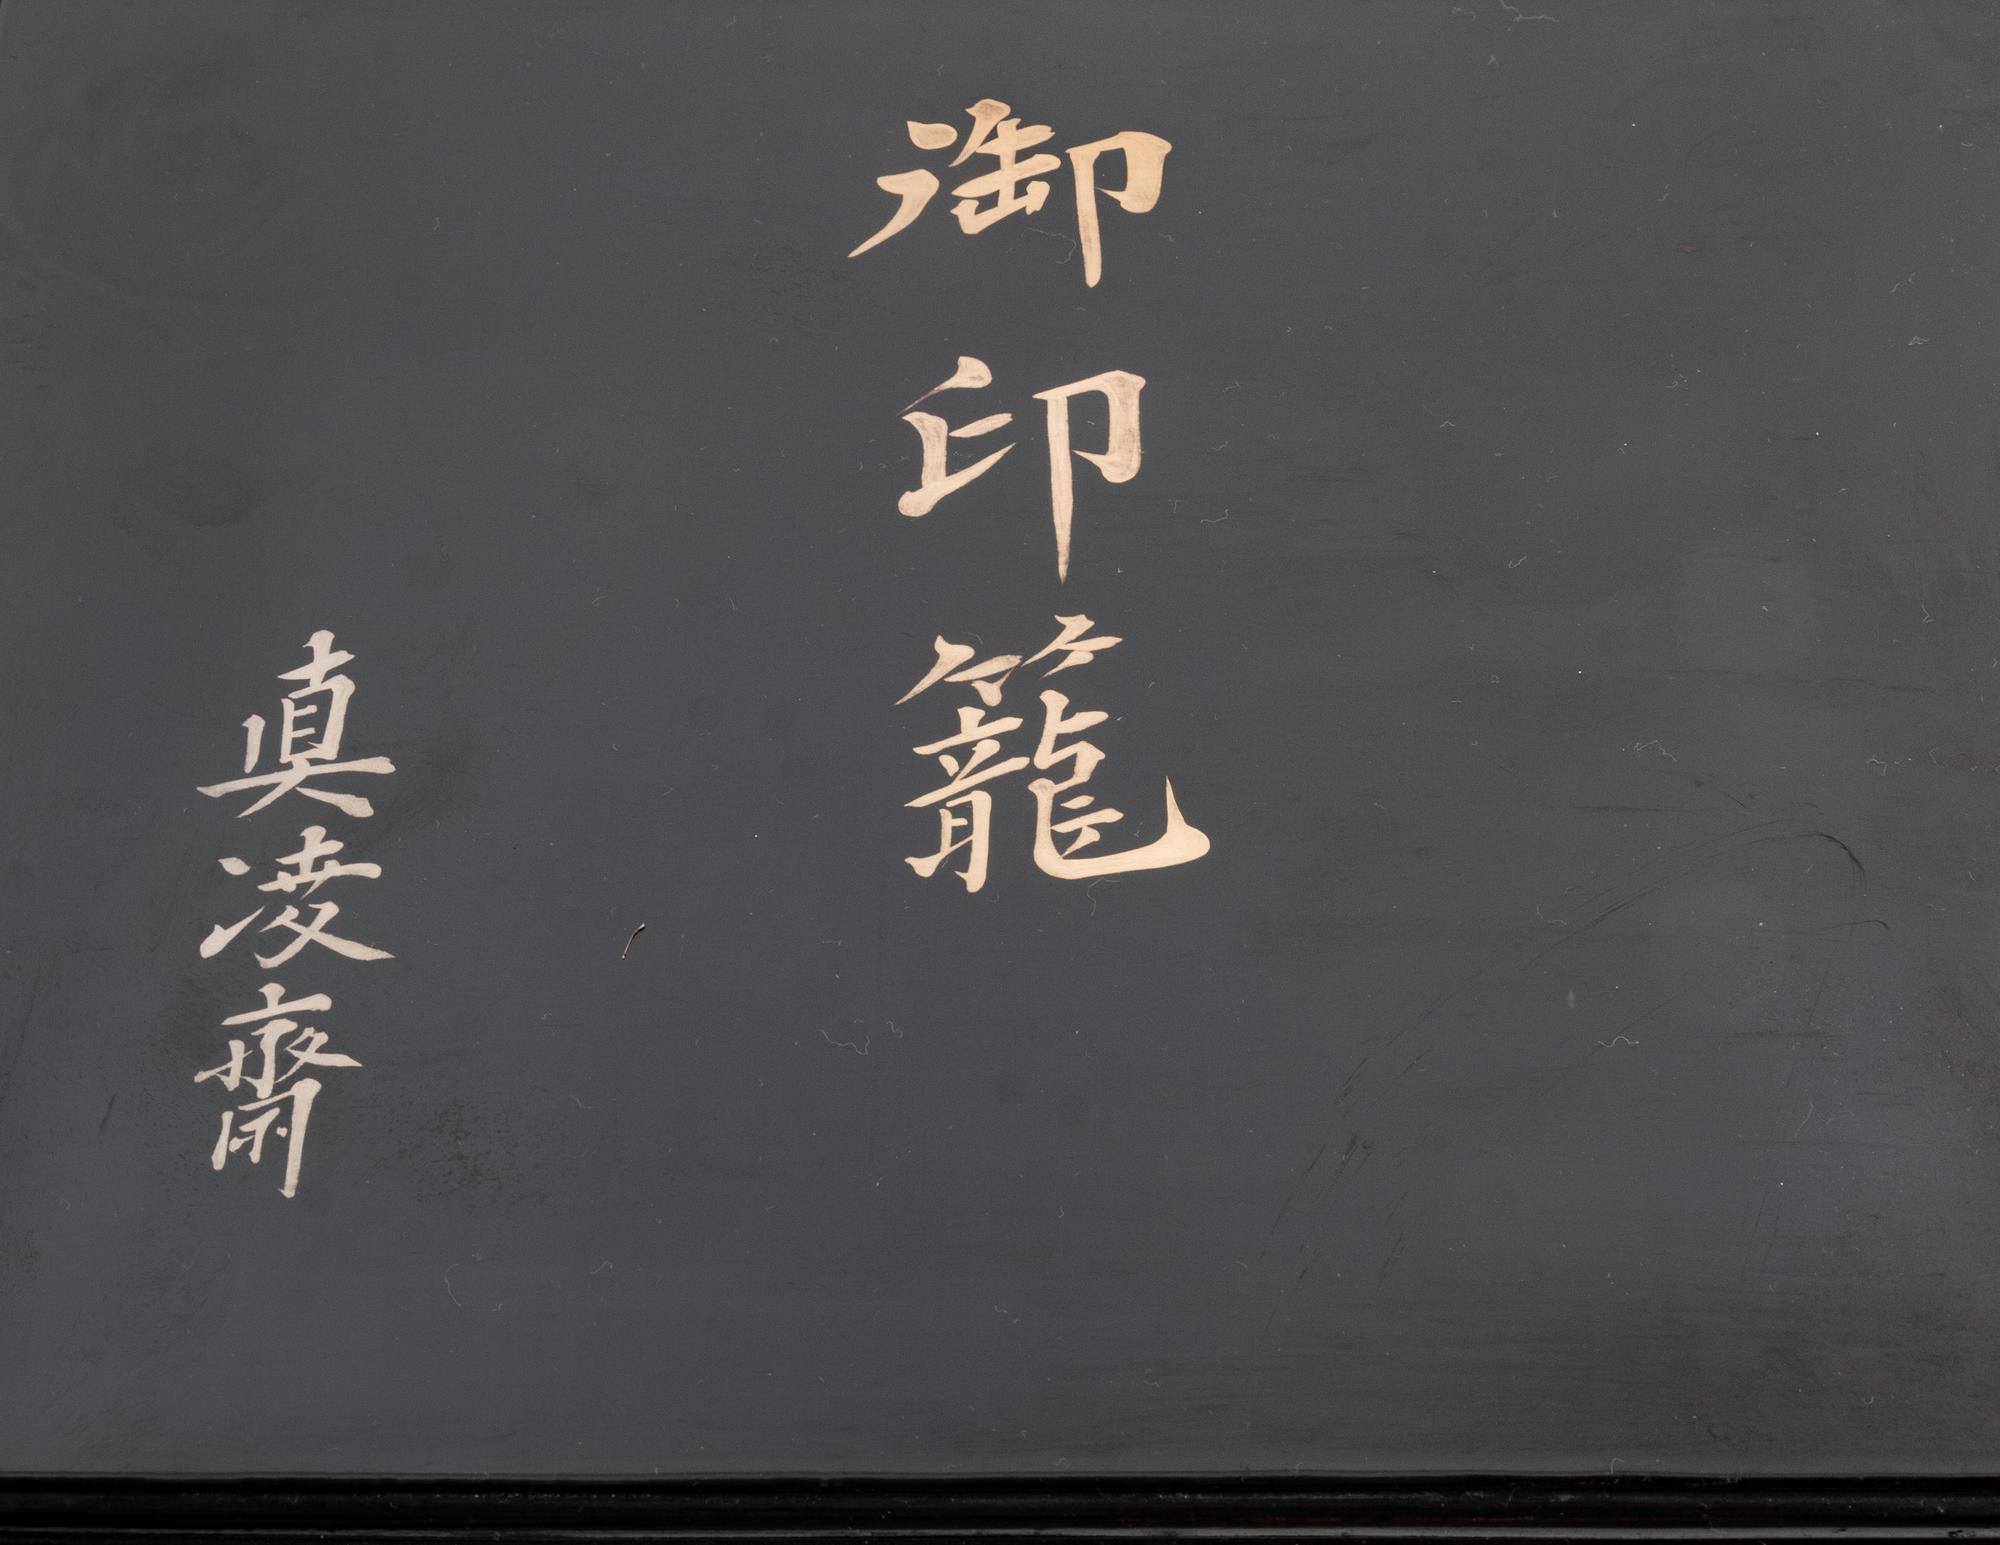 御印籠
真凌齋